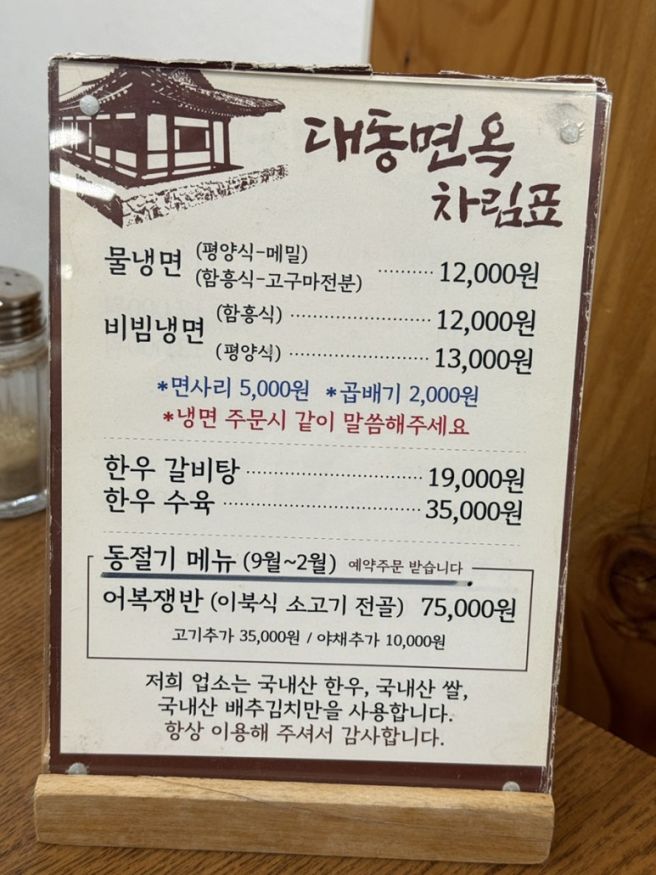 대동면옥
차림표
물냉면 (평양식-메밀)
(함흥식-고구마전분) ·········· 12,000원
비빔냉면 (함흥식) ························ 12,000원
(평양식) ························ 13,000원
*면사리 5,000원 *곱배기 2,000원
*냉면 주문시 같이 말씀해주세요
한우 갈비탕 ······························ 19,000원
한우 수육 ·································· 35,000원
동절기 메뉴 (9월~2월) 예약주문 받습니다
어복쟁반 (이북식 소고기 전골) 75,000원
고기추가 35,000원 / 야채추가 10,000원
저희 업소는 국내산 한우, 국내산 쌀,
국내산 배추김치만을 사용합니다.
항상 이용해 주셔서 감사합니다.